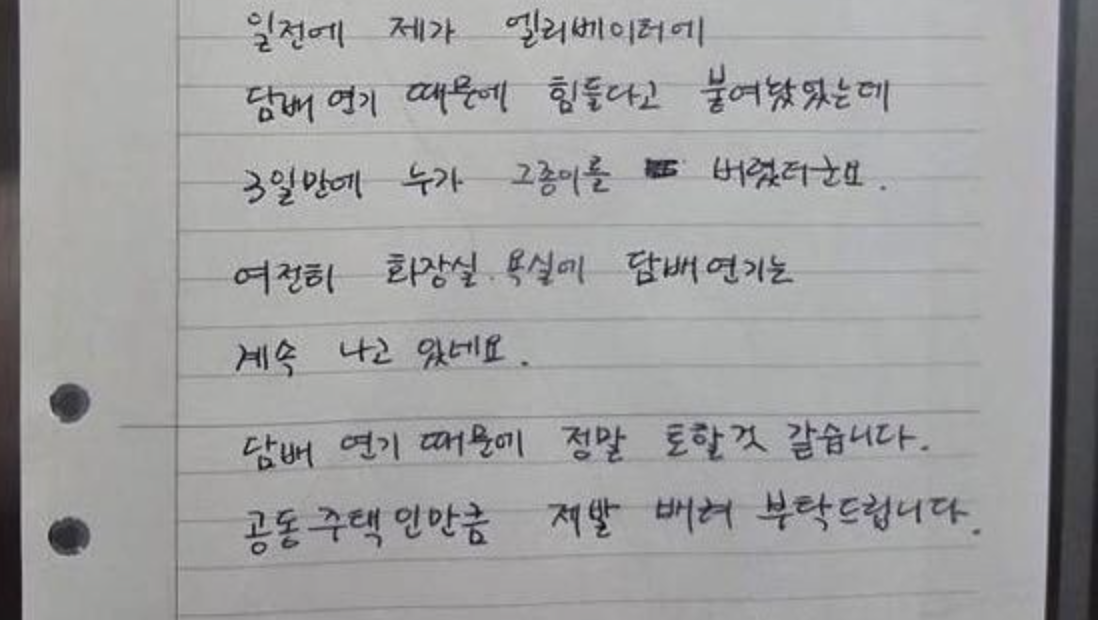 일전에 제가 엘리베이터에
담배 연기 때문에 힘들다고 붙여놨었는데
3일만에 누가 그종이를 버렸더군요.
여전히 화장실.욕실에 담배연기는
계속 나고 있네요.
담배 연기 때문에 정말 토할것 같습니다.
공동주택인만큼 제발 배려 부탁드립니다.